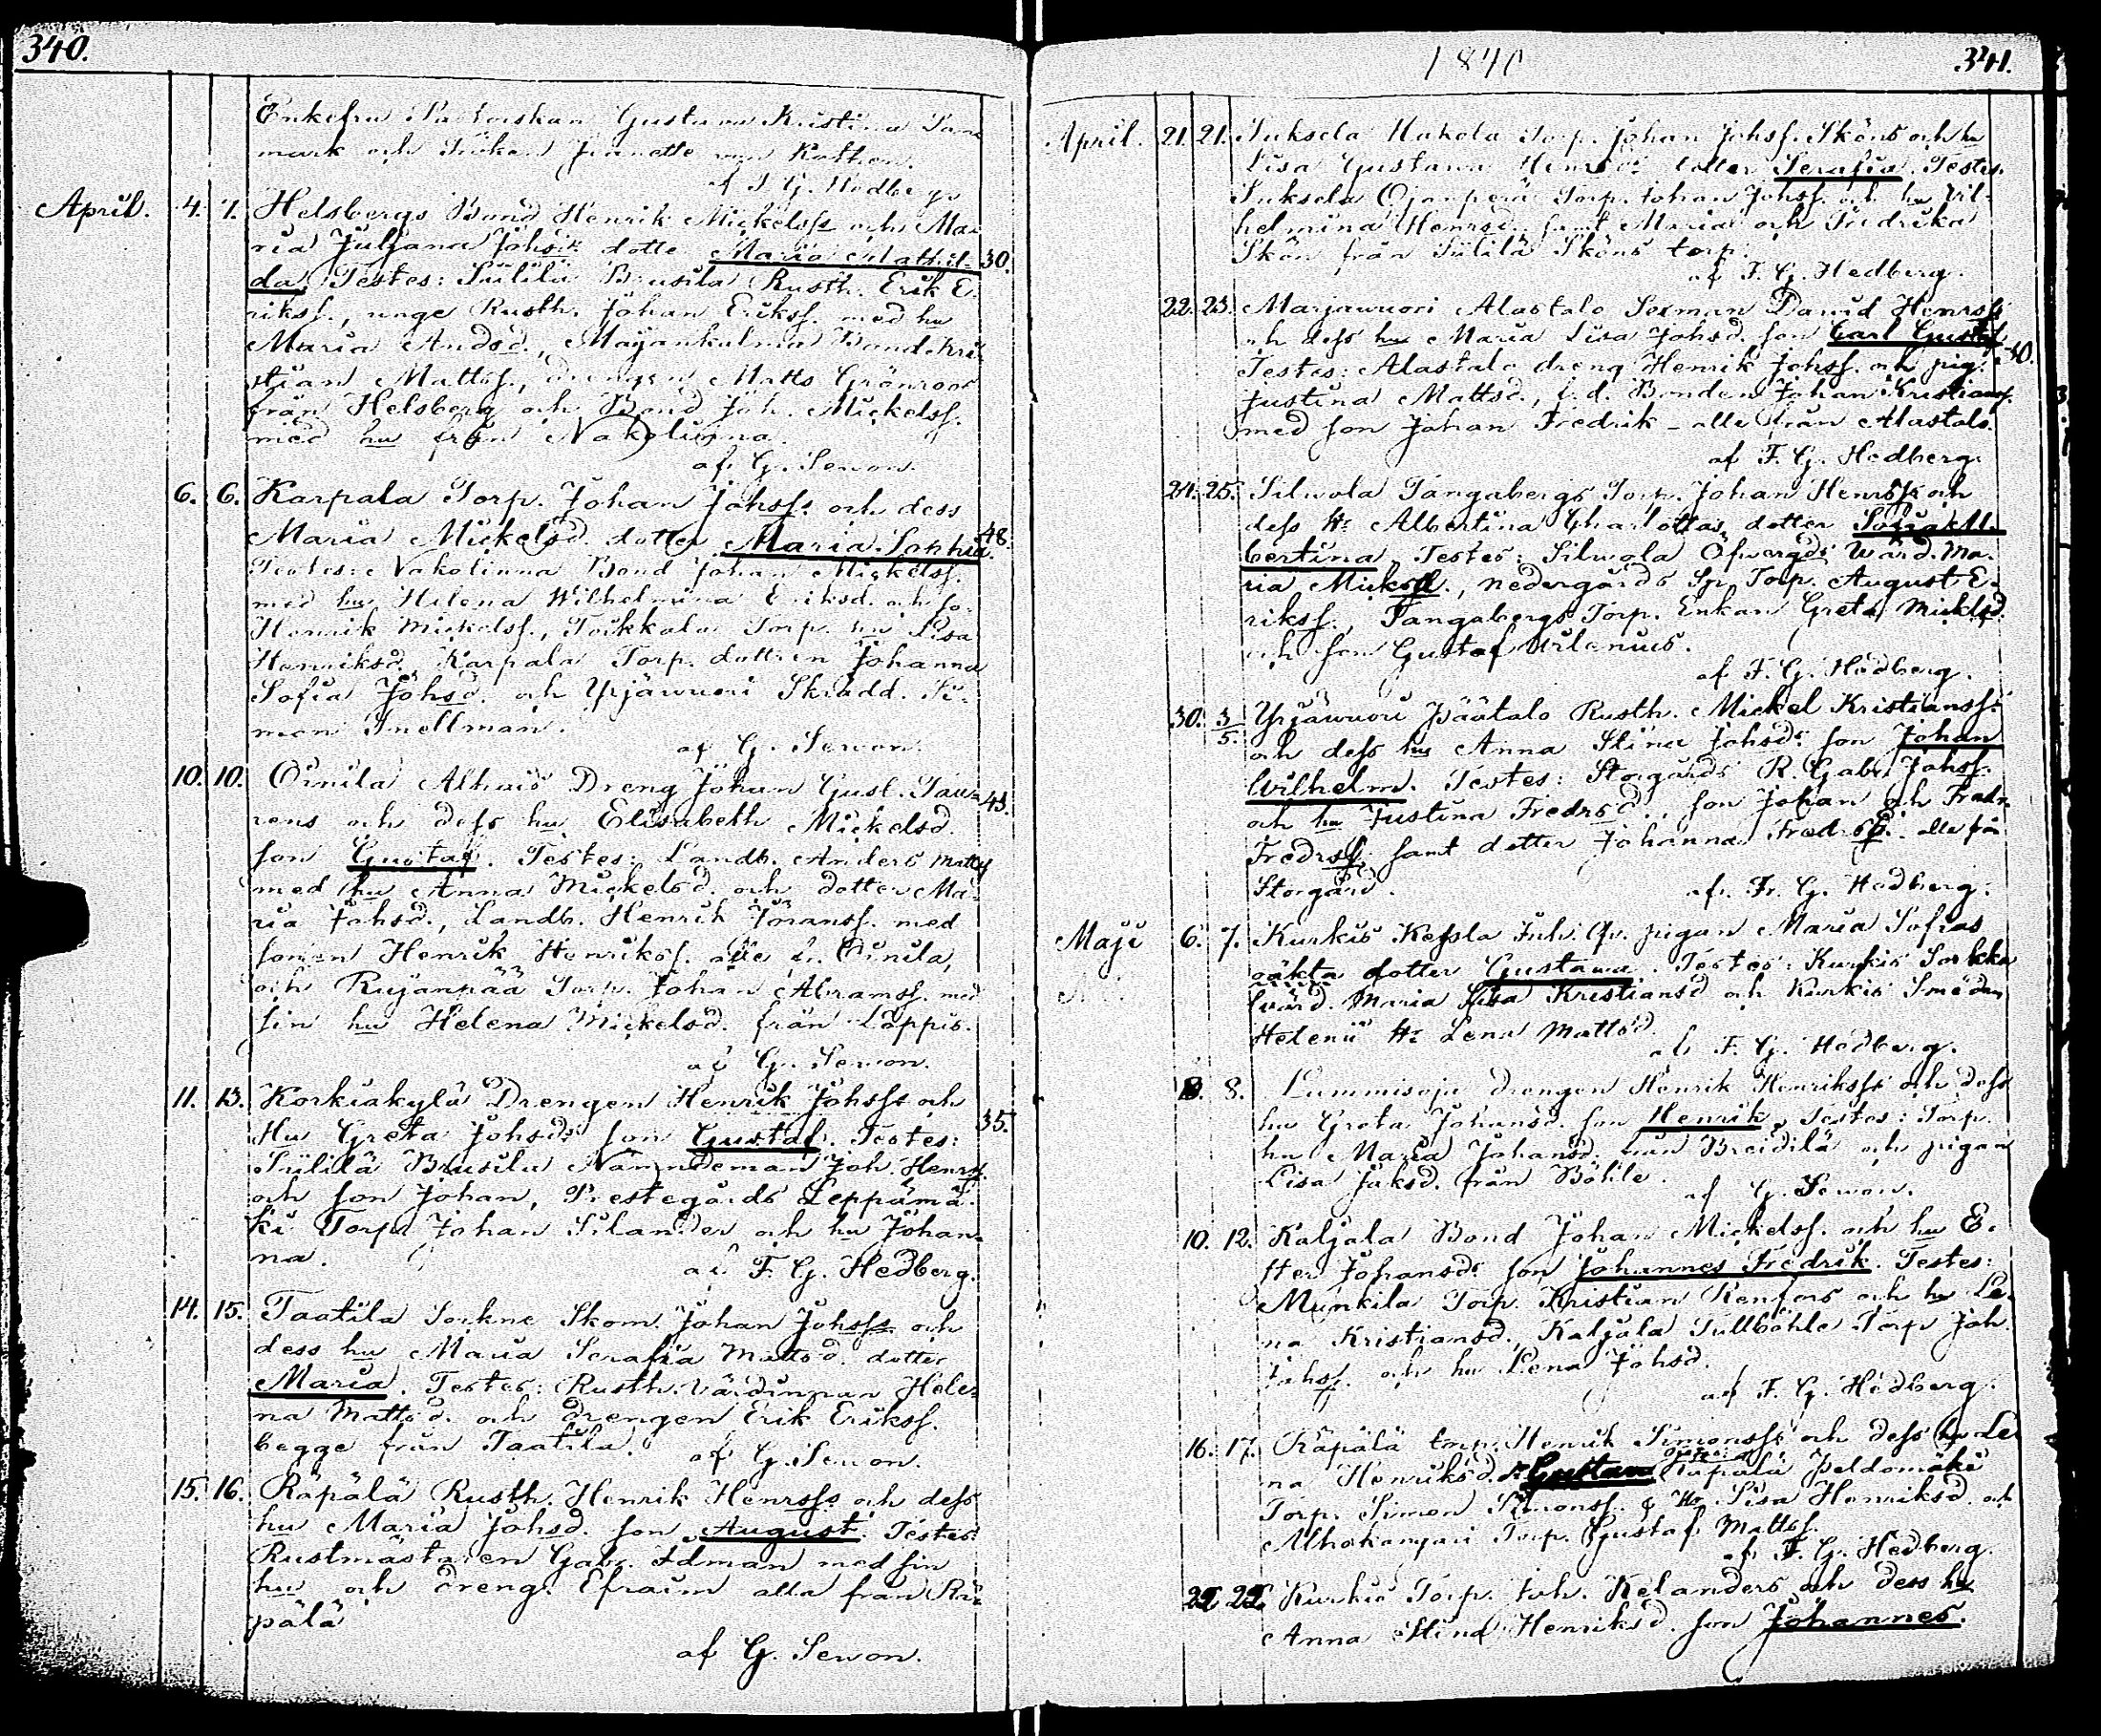 340.
Enkefru Gustava Kristina
mark och Fröken Jeanette von Kothen.
af F. G. Hedberg.
April. 4. 7. Helsbergs Bond Henrik Mickelsss och Ma-
ria Juljana Johsd: dotter Maria Mathil- 30.
da. Testes: Siililä Brusila Rusth. Erik E-
rikss., unge Rusth. Johan Erikss. med hu
Maria Andsd., Mayankulma Bond Kri-
stian Mattss., drengen Matts Grönroos
från Helsberg och Bond Joh. Mickelss.
med hu från Nakolinna.
af G. Sewon.
6. 6. Karpala Torp. Johan Johsss. och dess
Maria Mickelsd. dotter Maria Sophia. 48.
Testes: Nakolinna Bond Johan Mickelss.
med hu Helena Wilhelmina Eriksd. och so.
Henrik Mickelss., Torkkala Torp. hu Lisa
Henriksd., Karpala Torp. dottren Johanna
Sofia Johsd. och Yrjäwuori Skrädd. Si-
mon Snellman.
af G. Sewon.
10. 10. Oinila Alhais Dreng Johan Gust. Tau- 43.
rens och dess hu Elisabeth Mickelsd.
son Gustaf. Testes: Landb. Anders Mattss
med hu Anna Mickelsd. och dotter Ma-
ria Johsd., Landb. Henrik Göranss. med
sonen Henrik Henrikss. alle fr. Oinila,
och Rujanpää Torp. Johan Abramss. med
sin hu Helena Mickelsd. från Lappis.
af G. Sewon.
11. 13. Korkiakylä Drengen Henrik Johsss och
Hu Greta Johsd: son Gustaf. Testes: 35.
Siililä Brusila Nämndeman Joh. Henrss.
och son Johan, Prestegårds Leppämä-
ki Torp. Johan Silander och hu Johan-
na.
af F. G. Hedberg.
14. 15. Taatila Sockne Skom. Johan Johsss och
dess hu Maria Serafia Mattsd. dotter
Maria. Testes: Rusth. Värdinnan Hele-
na Mattsd. och drengen Erik Erikss.
begge från Taatila.
af G. Sewon.
15. 16. Räpälä Rusth. Henrik Henrsss och dess
hu Maria Johsd. son August. Testes:
Rustmästaren Gabr. Edman med sin
hu och dreng. Efraim alla från Rä-
pälä
af G. Sewon.
1840 341.
April. 21. 21. Suksela Makela Torp. Johan Johss. Sköns och hu
Lisa Gustava Henrsd: dotter Serafia. Testes.
Suksela Ojanperä Torp. Johan Johss. och hu Vil-
helmina Henrsd., samt Maria och Fredrika
Skön från Siililä Sköns torp.
af F. G. Hedberg.
22. 23. Marjawuori Alastalo Sexman David Henrsss
och dess hu Maria Lisa Johsd. son Carl Gustaf
Testes: Alastalo dreng Henrik Johss. och pig. 40.
Justina Mattsd., f.d. Bonden Johan Kristianss.
med son Johan Fredrik - alle från Alastalo.
af F. G. Hedberg.
24. 25. Silwola Tangabergs Torp. Johan Henrsss och
dess H: Albertina Charlottas dotter Sofia Al-
bertina. Testes: Silwola Öfwergårds Wärd. Ma-
ria Micksd., nedergårds Torp. August E-
rikss., Tangabergs Torp. Enkan Greta Mickelsd.
och son Gustaf Urlenius.
af F. G. Hedberg.
30. 3/5. Yrjäwuori Päätalo Rusth. Mickel Kristiansss
och dess hu Anna Stina Johsd: son Johan
Wilhelm. Testes: Storgårds R. Gabr. Johss.
och hu Justina Fredrsd., son Johan och Fredr.
Fredrss. samt dotter Johanna Fredrsd. alle från
Storgård.
af. Fr. G. Hedberg.
Maji 6. 7. Kurkis Kessla Inh. Qv. pigan Maria Sofias
oäkta dotter Gustava. Testes: Kurkis Sorkka
wärd. Maria Lisa Kristiansd och Kurkis Smeden
Helenii H: Lena Mattsd.
af F. G. Hedberg.
8. 8. Lammisoja drengen Henrik Henriksss och dess
hu Greta Johansd. son Henrik. Testes: Torp.
hu Maria Johansd. från Breidilä och pigan
Lisa Jaksd. från Böhle.
af G. Sewon.
10. 12. Kaljala Bond Johan Mickelss. och hu E-
ster Johansd: son Johannes Fredrik. Testes:
Munkila Torp. Kristian Renfors och hu Le-
na Kristiansd., Kaljala Tullböhle Torp Joh.
Johss. och hu Lena Johsd.
af F. G. Hedberg.
16. 17. Räpälä torp. Henrik Simonsss och dess hu Le-
na Henriksd. Gustava Testes: Räpälä Peldomäki
Torp. Simon Simonss. & Hu Lisa Henriksd. och
Torp. Gustaf Mattss.
af F. G. Hedberg.
22. 22. Kurkis Torp. Joh. Kelanders och dess hu
Anna Stina Henriksd. son Johannes.